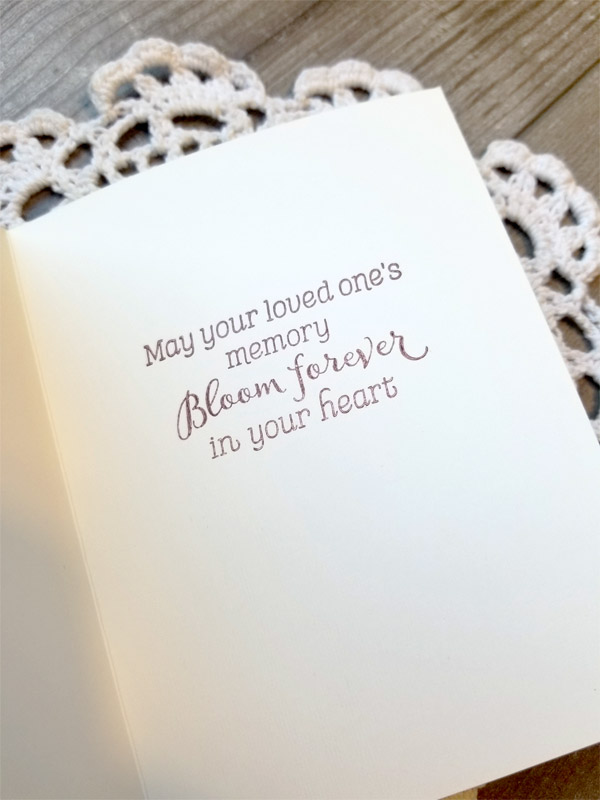 May your loved one's
memory
Bloom forever
in your heart